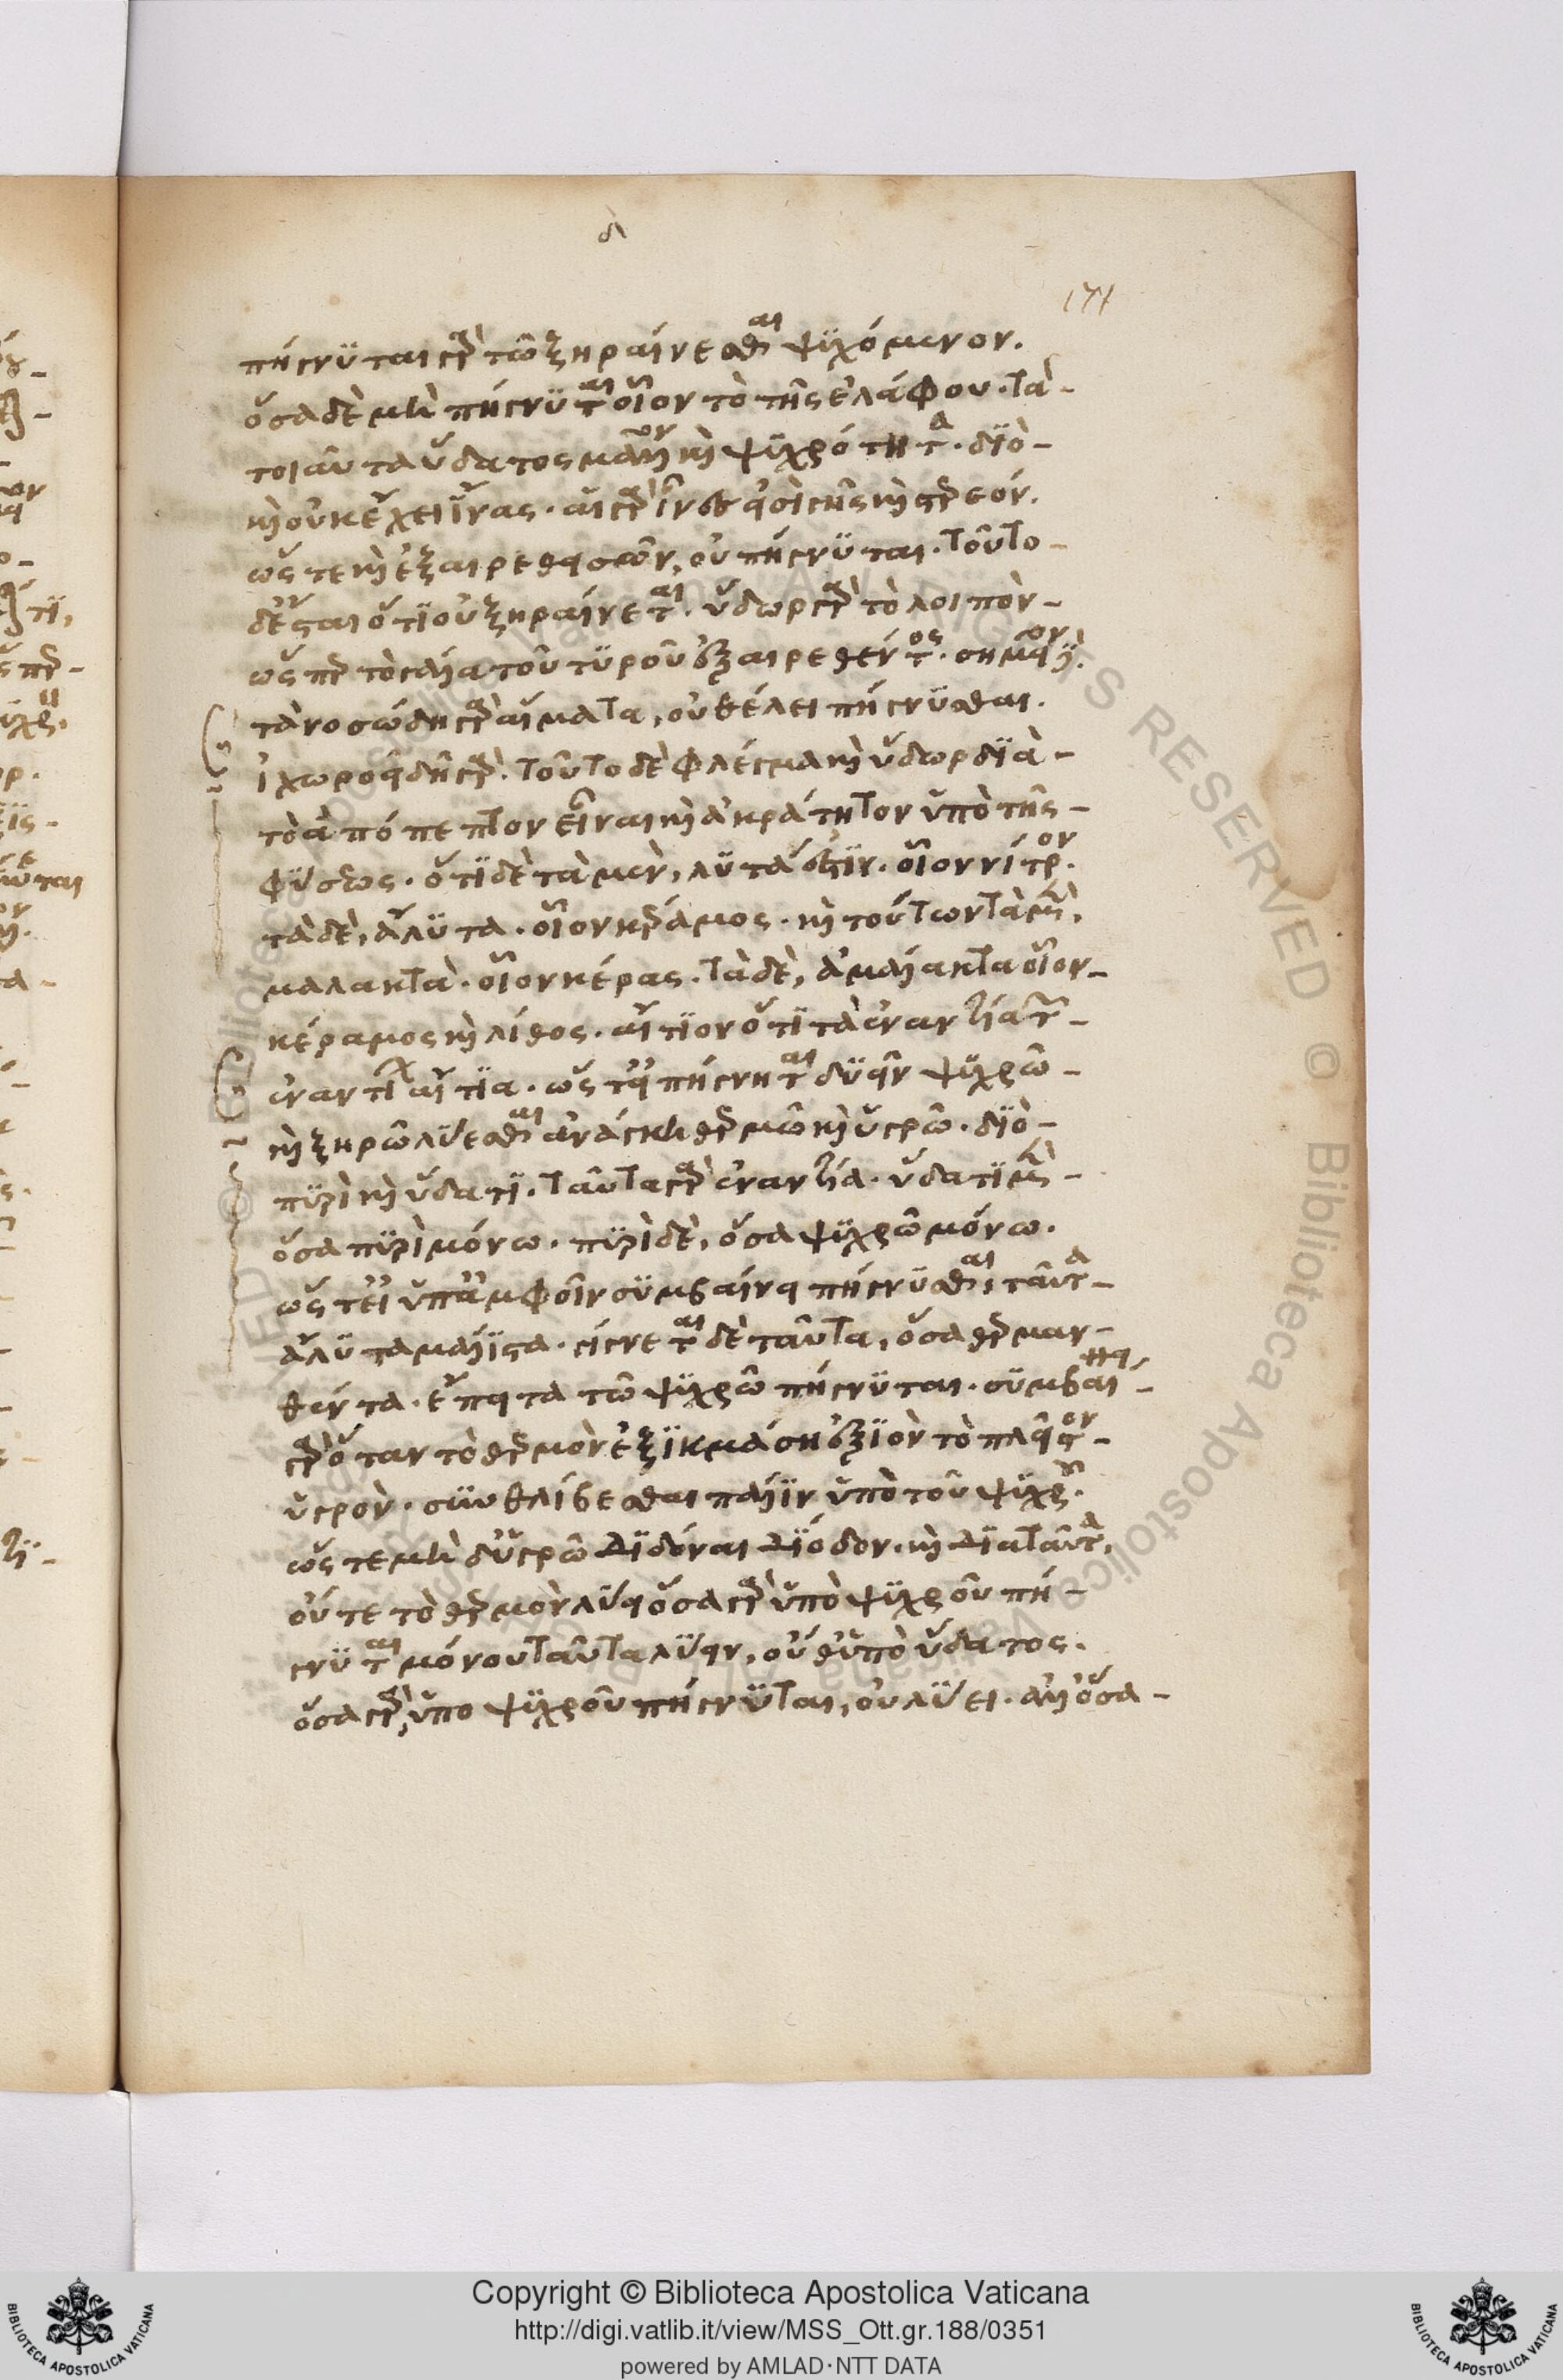 δ
171
πήγνυται γὰρ τῶ ξηραίνεσθαι ψυχόμενον.
ὅσα δὲ μὴ πήγνυται οἷον τὸ τῆς ἐλάφου. τὰ
τοιαῦτα ὕδατος μᾶλλον καὶ ψυχρότητα. διὸ
καὶ οὐκ ἔχει ἶνας. αἱ γὰρ ἶνές εἰσι γῆς καὶ στερεόν.
ὥστε καὶ ἐξαιρεθεισῶν, οὐ πήγνυται. τοῦτο
δ' ἔσται ὅτι οὐ ξηραίνεται. ὕδωρ γὰρ τὸ λοιπὸν
ὥσπερ τὸ γάλα τοῦ τυροῦ ἐξαιρεθέντος. σημεῖον δὲ.
τὰ νοσώδη γὰρ αἵματα, οὐ θέλει πήγνυσθαι.
ἰχωροειδῆ γὰρ. τοῦτο δὲ φλέγμα καὶ ὕδωρ διὰ
τὸ ἄπόπεπτον εἶναι καὶ ἀκράτητον ὑπὸ τῆς
φύσεως. ὅτι δὲ τὰ μὲν, λυτά ἐστιν. οἷον νίτρον.
τὰ δὲ, ἄλυτα. οἷον κέραμος. καὶ τούτων τὰ μὲν,
μαλακτὰ. οἷον κέρας. τὰ δὲ, ἀμάλακτα οἷον
κέραμος καὶ λίθος. αἴτιον ὅτι τὰ ἐναντία τῶν
ἐναντίων αἴτια. ὥστ' εἰ πήγνηται δυεῖν ψυχρῶ
καὶ ξηρῶ λύεσθαι ἀνάγκη θερμῶ καὶ ὑγρῶ. διὸ
πυρὶ καὶ ὕδατι. ταῦτα γὰρ ἐναντία. ὕδατι μὲν
ὅσα πυρὶ μόνω. πυρὶ δὲ, ὅσα ψυχρῶ μόνω.
ὥστ' εἰ ὑπ' ἀμφοῖν συμβαίνει πήγνυσθαι, ταῦτα
ἄλυτα μάλιστα. γίγνεται δὲ ταῦτα, ὅσα θερμαν
θέντα. ἔπειτα τῶ ψυχρῶ πήγνυται. συμβαίνει
γὰρ ὅταν τὸ θερμὸν ἐξικμάση ἐξιὸν τὸ πλεῖστον
ὑγρὸν. συνθλίβεσθαι πάλιν ὑπὸ τοῦ ψυχροῦ.
ὥστε μὴ δ' ὑγρῶ διδόναι δίοδον. καὶ διὰ ταῦτα,
οὔτε τὸ θερμὸν λύει ὅσα γὰρ ὑπὸ ψυχροῦ πή
γνυται μόνου ταῦτα λύειν, οὔθ' ὑπὸ ὕδατος.
ὅσα γὰρ, ὑπο ψυχροῦ πήγνυται, οὐ λύει. ἀλλ' ὅσα
Copyright © Biblioteca Apostolica Vaticana
http://digi.vatlib.it/view/MSS_Ott.gr.188/0351
powered by AMLAD·NTT DATA
BIBLIOTECA APOSTOLICA VATICANA
BIBLIOTECA APOSTOLICA VATICANA